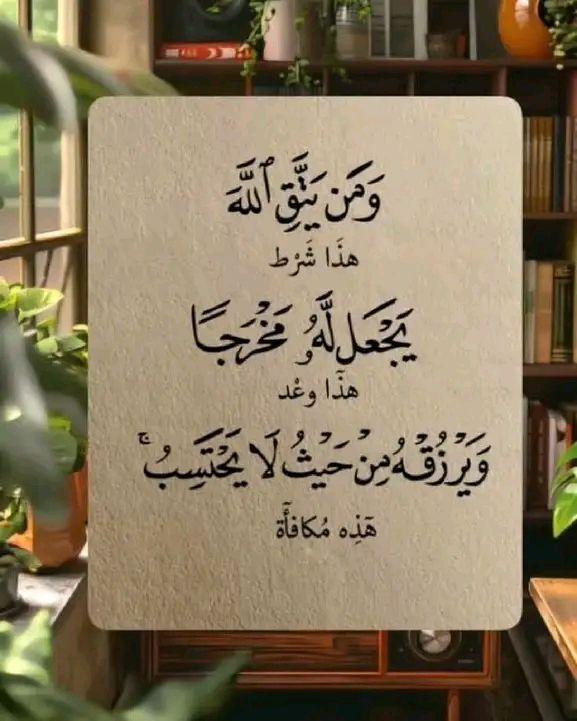 وَمَن يَتَّقِ ٱللَّهَ
هذَا شَرْط
يَجْعَل لَّهُۥ مَخْرَجًا
هذَا وعْد
وَيَرْزُقْهُ مِنْ حَيْثُ لَا يَحْتَسِبُ ۚ
هَذِه مُكافأَة